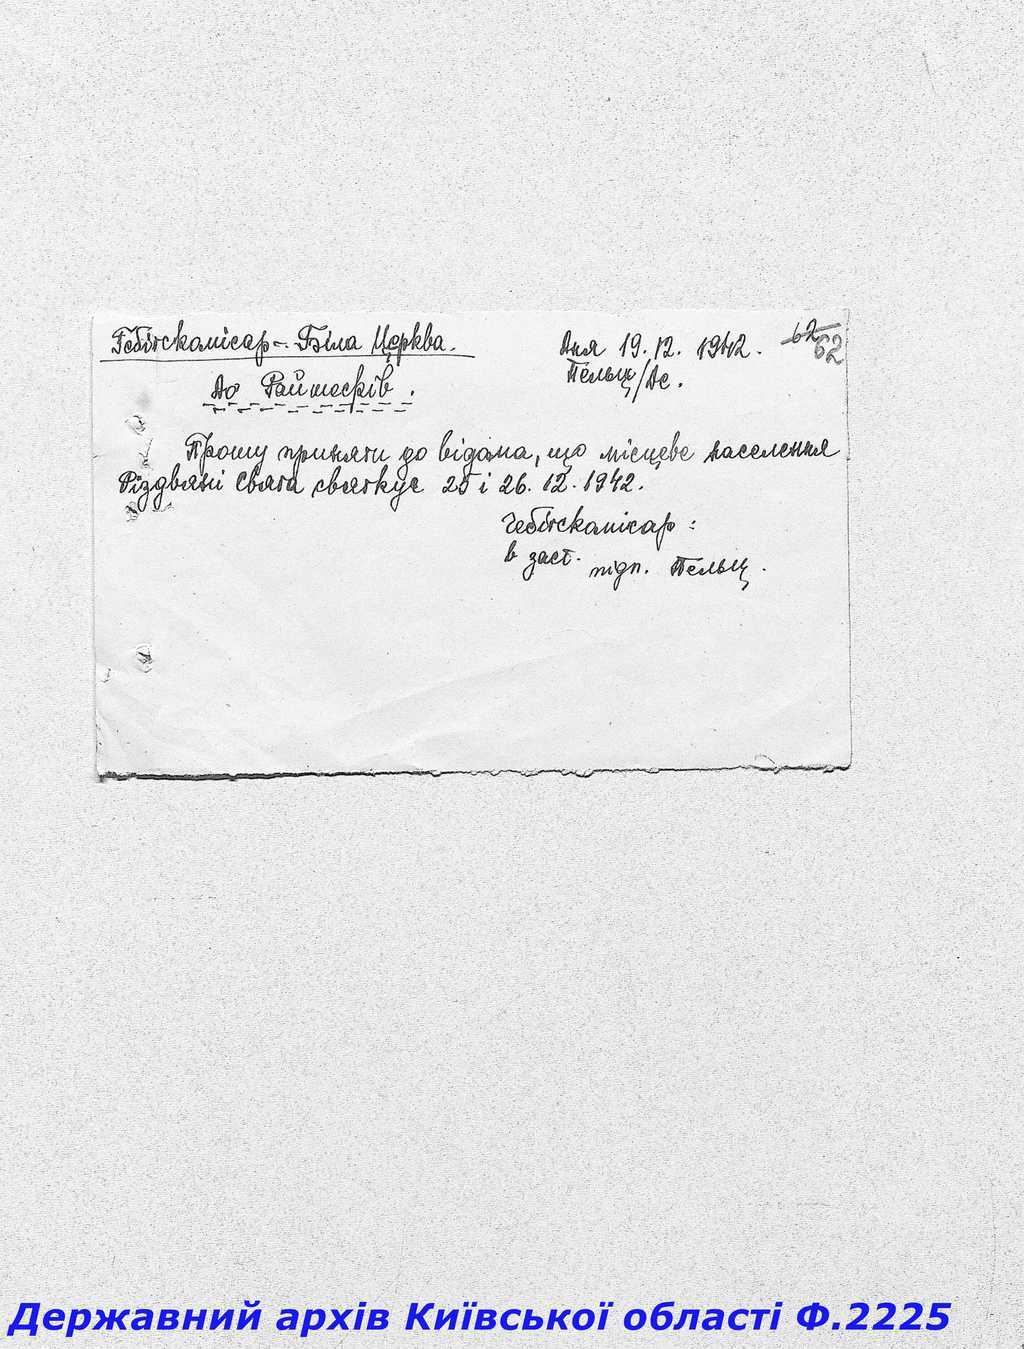 Гебітскомісар - Біла Церква.
Дня 19.12.1942.
62
62
Пельц/Ас.
До Райшефів.
Прошу приняти до відома, що місцеве населення
Різдвяні свята святкує 25 і 26.12.1942.
Гебітскомісар:
в заст. підп. Пельц.
Державний архів Київської області Ф.2225